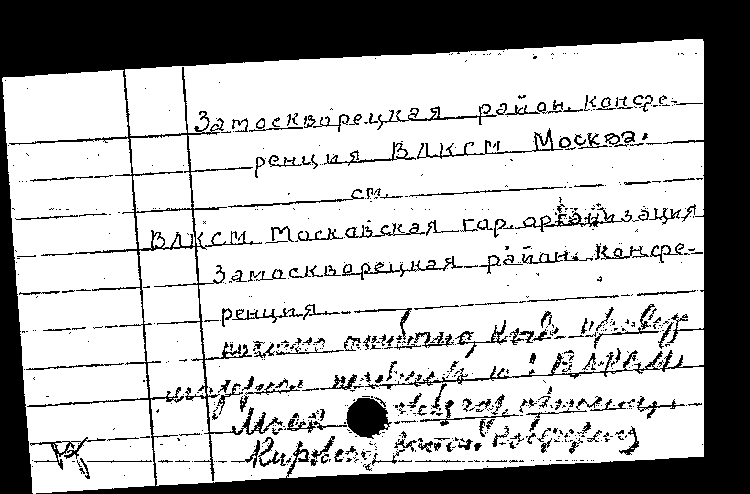 Замоскворецкая район. конфе-
ренция ВЛКСМ Москва.
см.
ВЛКСМ. Московская гор. организация
Замоскворецкая район. конфе-
ренция.
ошибочно, когда
материал : ВЛКСМ.
Моск гор.
Кировская район. конференц